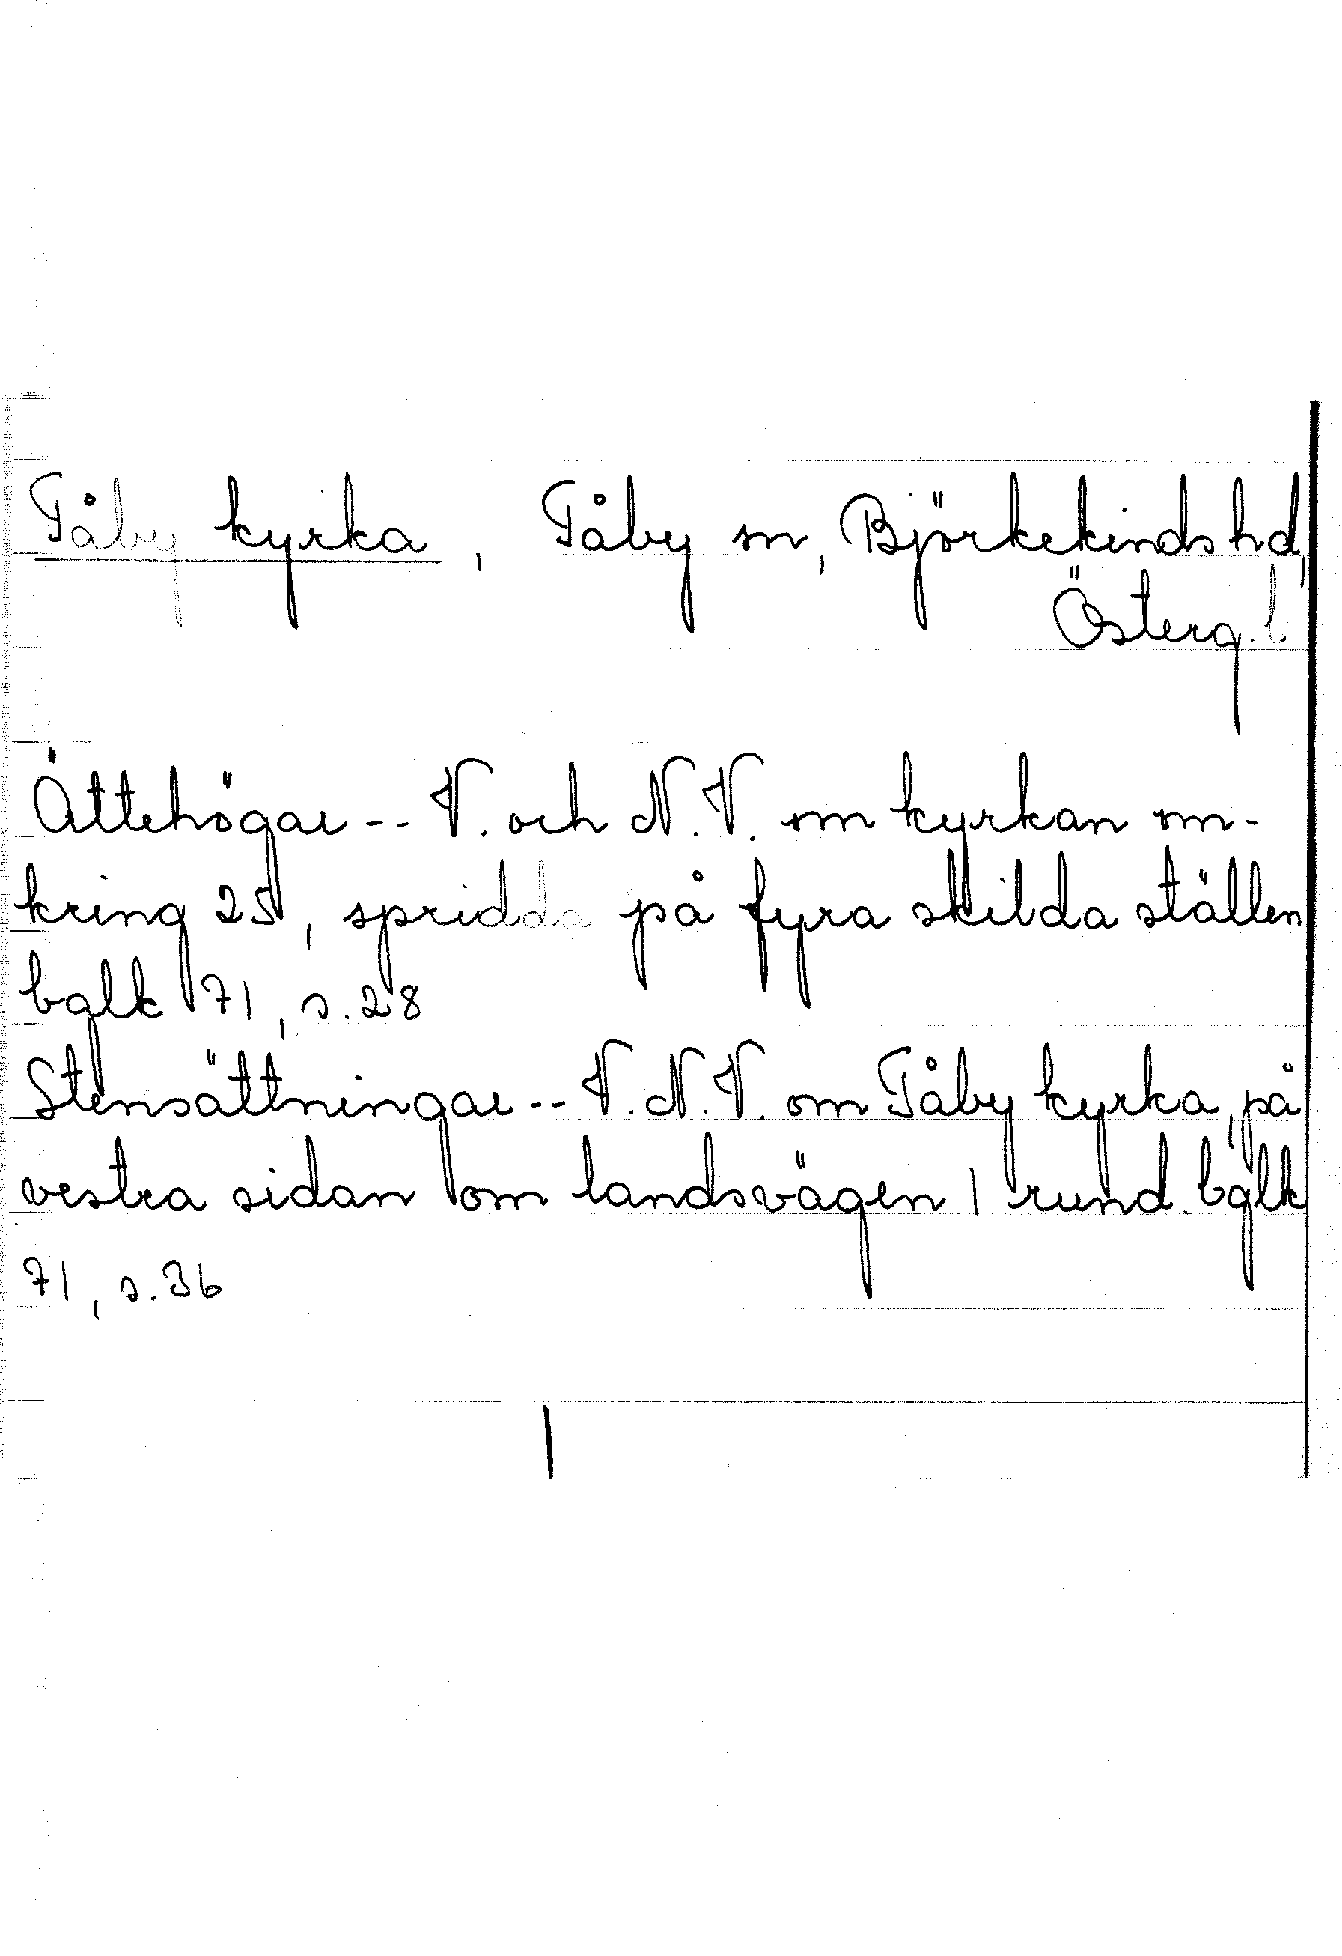 Tåby kyrka, Tåby sn, Björkekinds hd,
Österg. l
Ättehögar -- V. och N.V. om kyrkan om-
kring 25, spridda på fyra skilda ställen
bglk 71, s. 28
Stensättningar -- V.N.V. om Tåby kyrka, på
vestra sidan om landsvägen 1 rund. bglk
71, s. 36